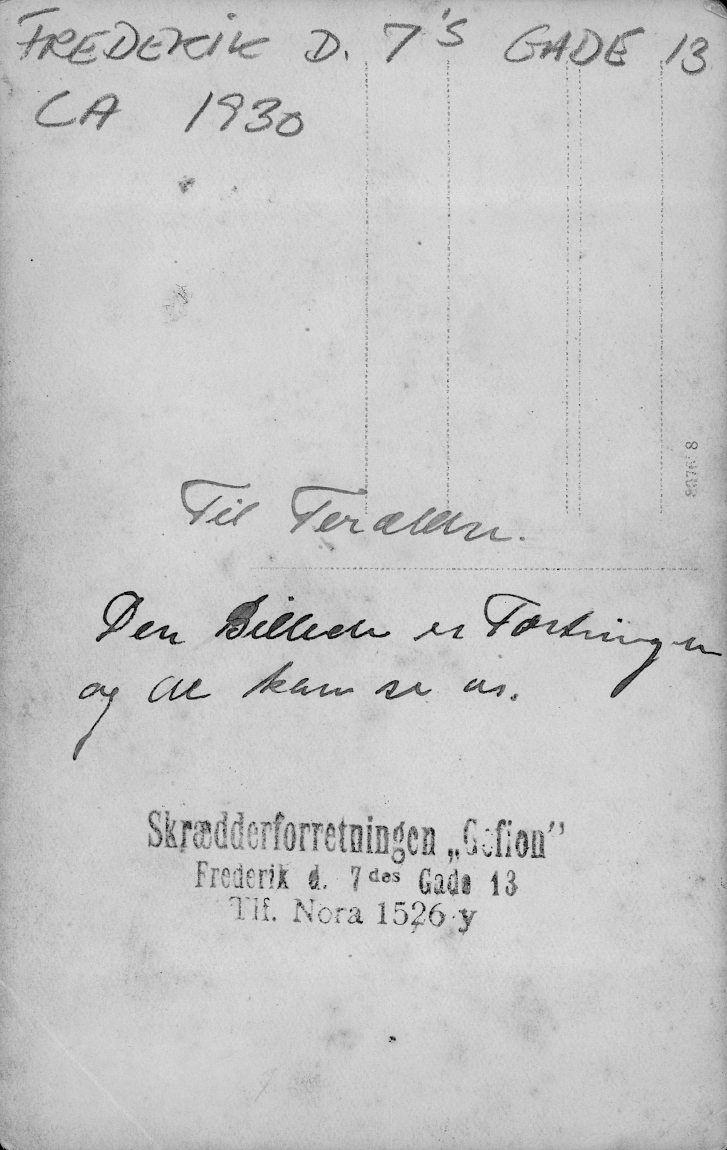 FREDERIK D. 7'S GADE 13
CA 1930
8876 8
Til Forældre.
Den Billede er Forttningen
og de kan se os.
Skrædderforretningen „Gefion”
Frederik d. 7 des Gade 13
Tlf. Nora 1526 y